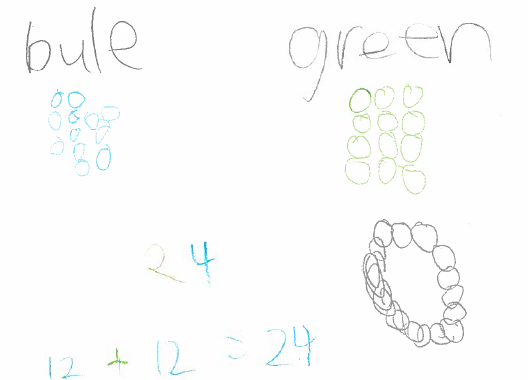 bule green
24
12 + 12 = 24